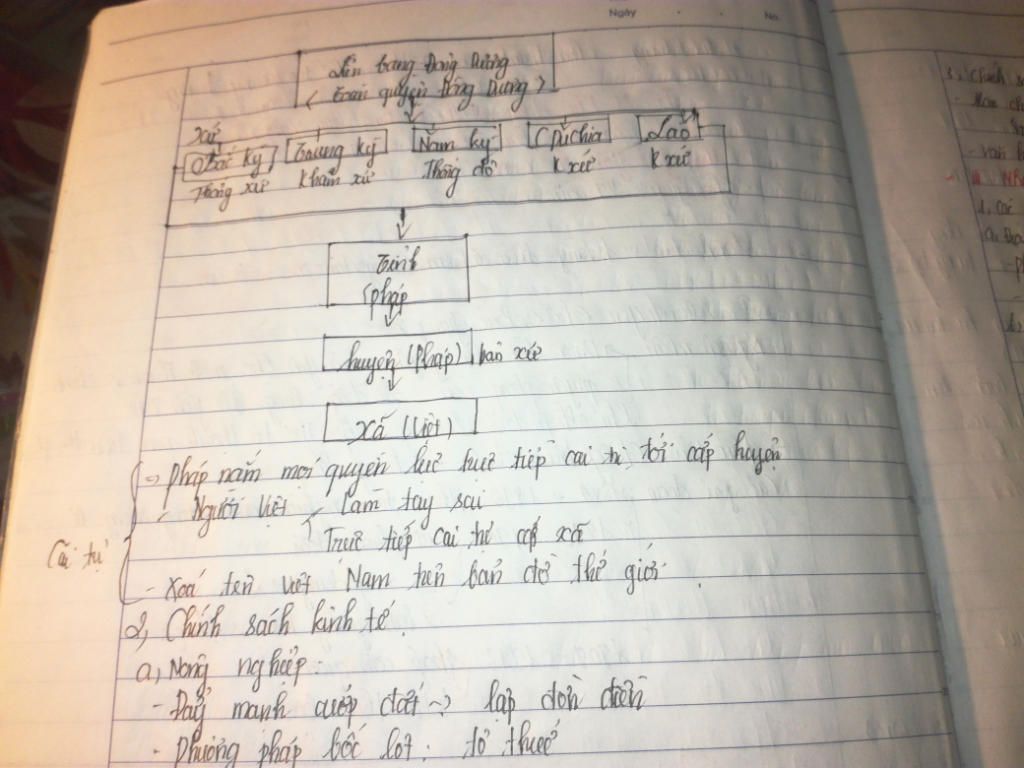 Ngày No.
Liên bang Đông Dương
( Toàn quyền Đông Dương )
Xứ
Bắc kỳ Trung kỳ Nam kỳ CPuchia Lào
Thống xứ Khâm xứ Thống đố K xứ K xứ
Tỉnh
(pháp
huyện (Pháp) bản xứ
Xã (Việt)
-> Pháp nắm mọi quyền lực trực tiếp cai trị tới cấp huyện
- Người Việt làm tay sai
Trực tiếp cai trị cấp xã
Cai trị
- Xoá tên Việt Nam trên bản đồ thế giới.
2, Chính sách kinh tế.
a, Nông nghiệp:
- Đẩy mạnh cướp đất -> lập đồn điền
- Phương pháp bóc lột: tô thuế
3, Chính
1, Các